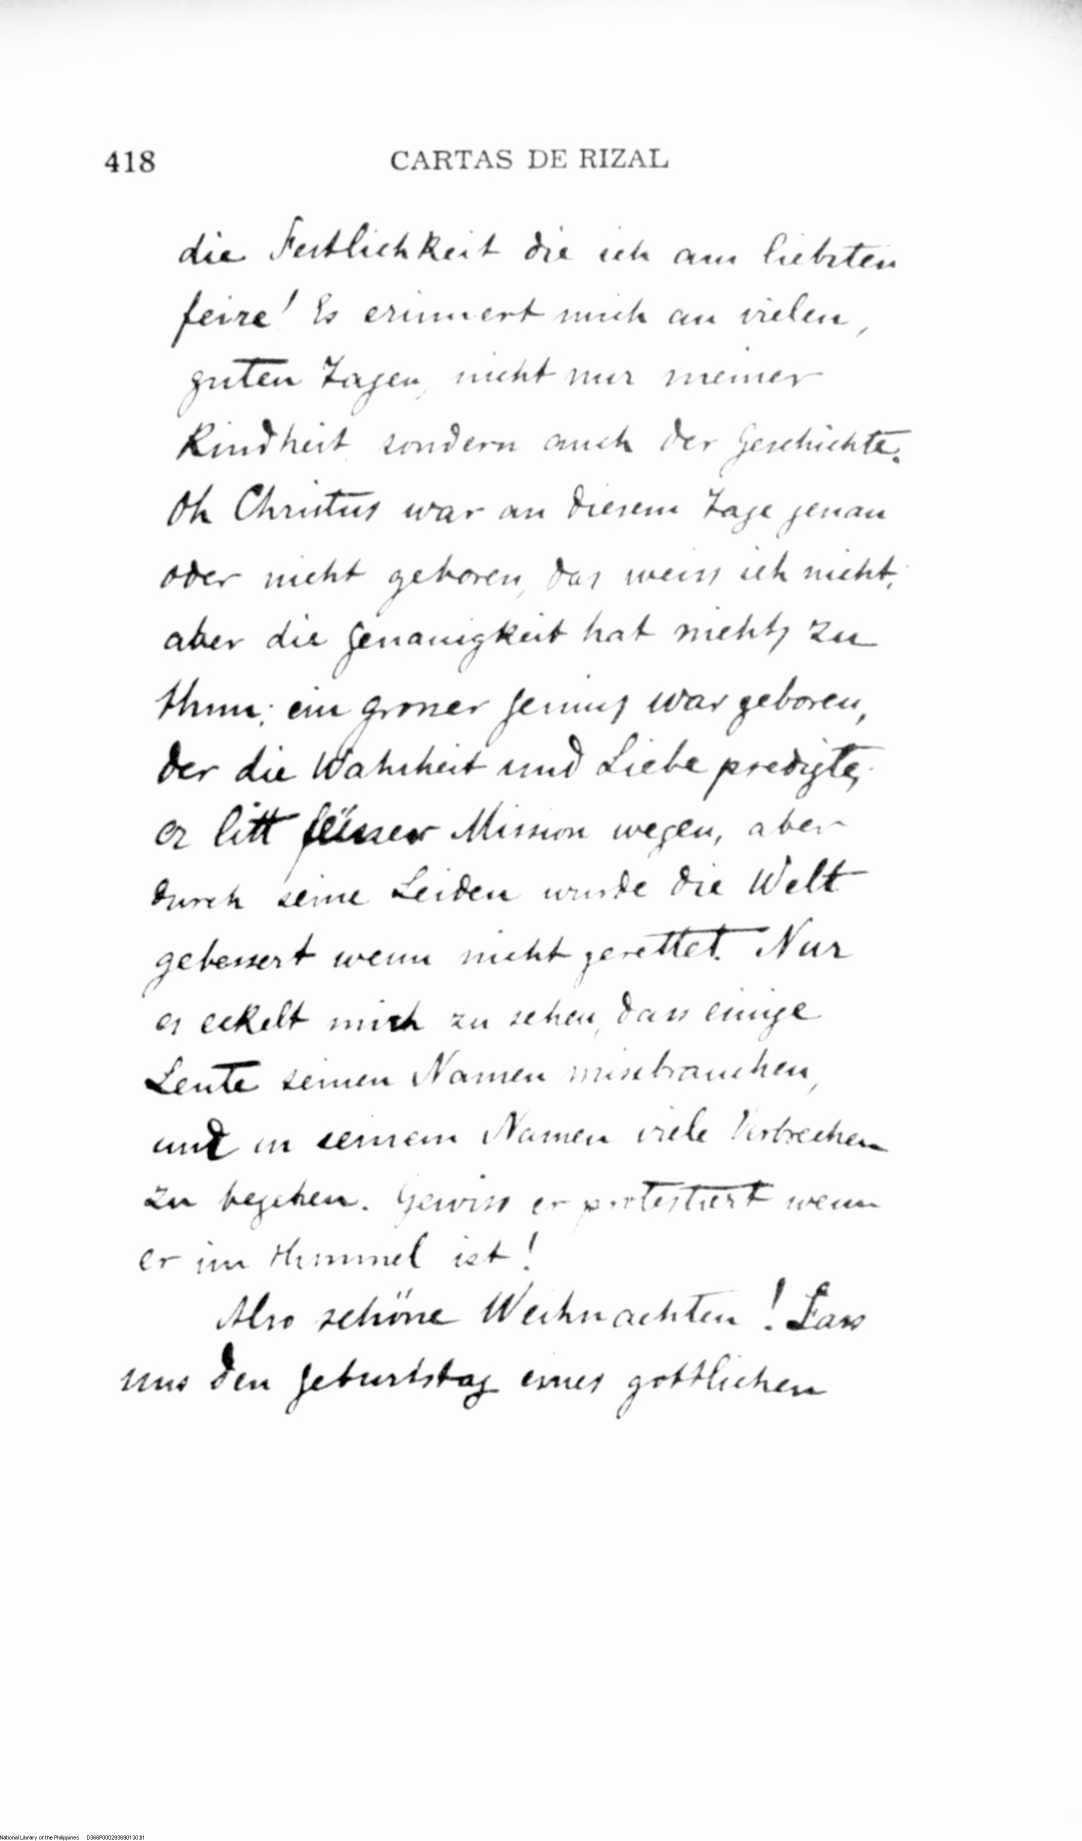 418 CARTAS DE RIZAL
die Festlichkeit die ich am liebsten
feire! Es erinnert mich an vielen,
guten Tagen, nicht nur meiner
Kindheit sondern auch der Geschichte.
Oh Christus war an diesem Tage genau
oder nicht geboren, das weiss ich nicht;
aber die Genauigkeit hat nichts zu
thun; ein grosser Genius war geboren,
der die Wahrheit und Liebe predigte;
er litt seiner Mission wegen, aber
durch seine Leiden wurde die Welt
gebessert wenn nicht gerettet. Nur
es eckelt mich zu sehen, dass einige
Leute seinen Namen missbrauchen,
und in seinem Namen viele Verbrechen
zu begehen. Gewiss er protestiert wenn
er im Himmel ist!
Also schöne Weihnachten! Lass
uns den Geburtstag eines gottlichen
National Library of the Philippines